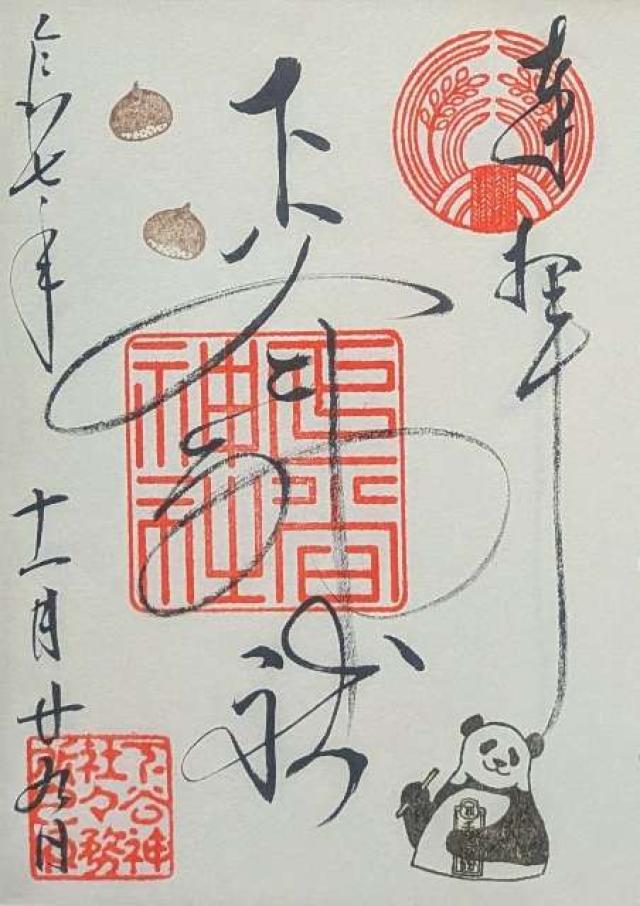 奉拝
下谷神社
神社
令和七年十一月廿九日
下谷神
社々務